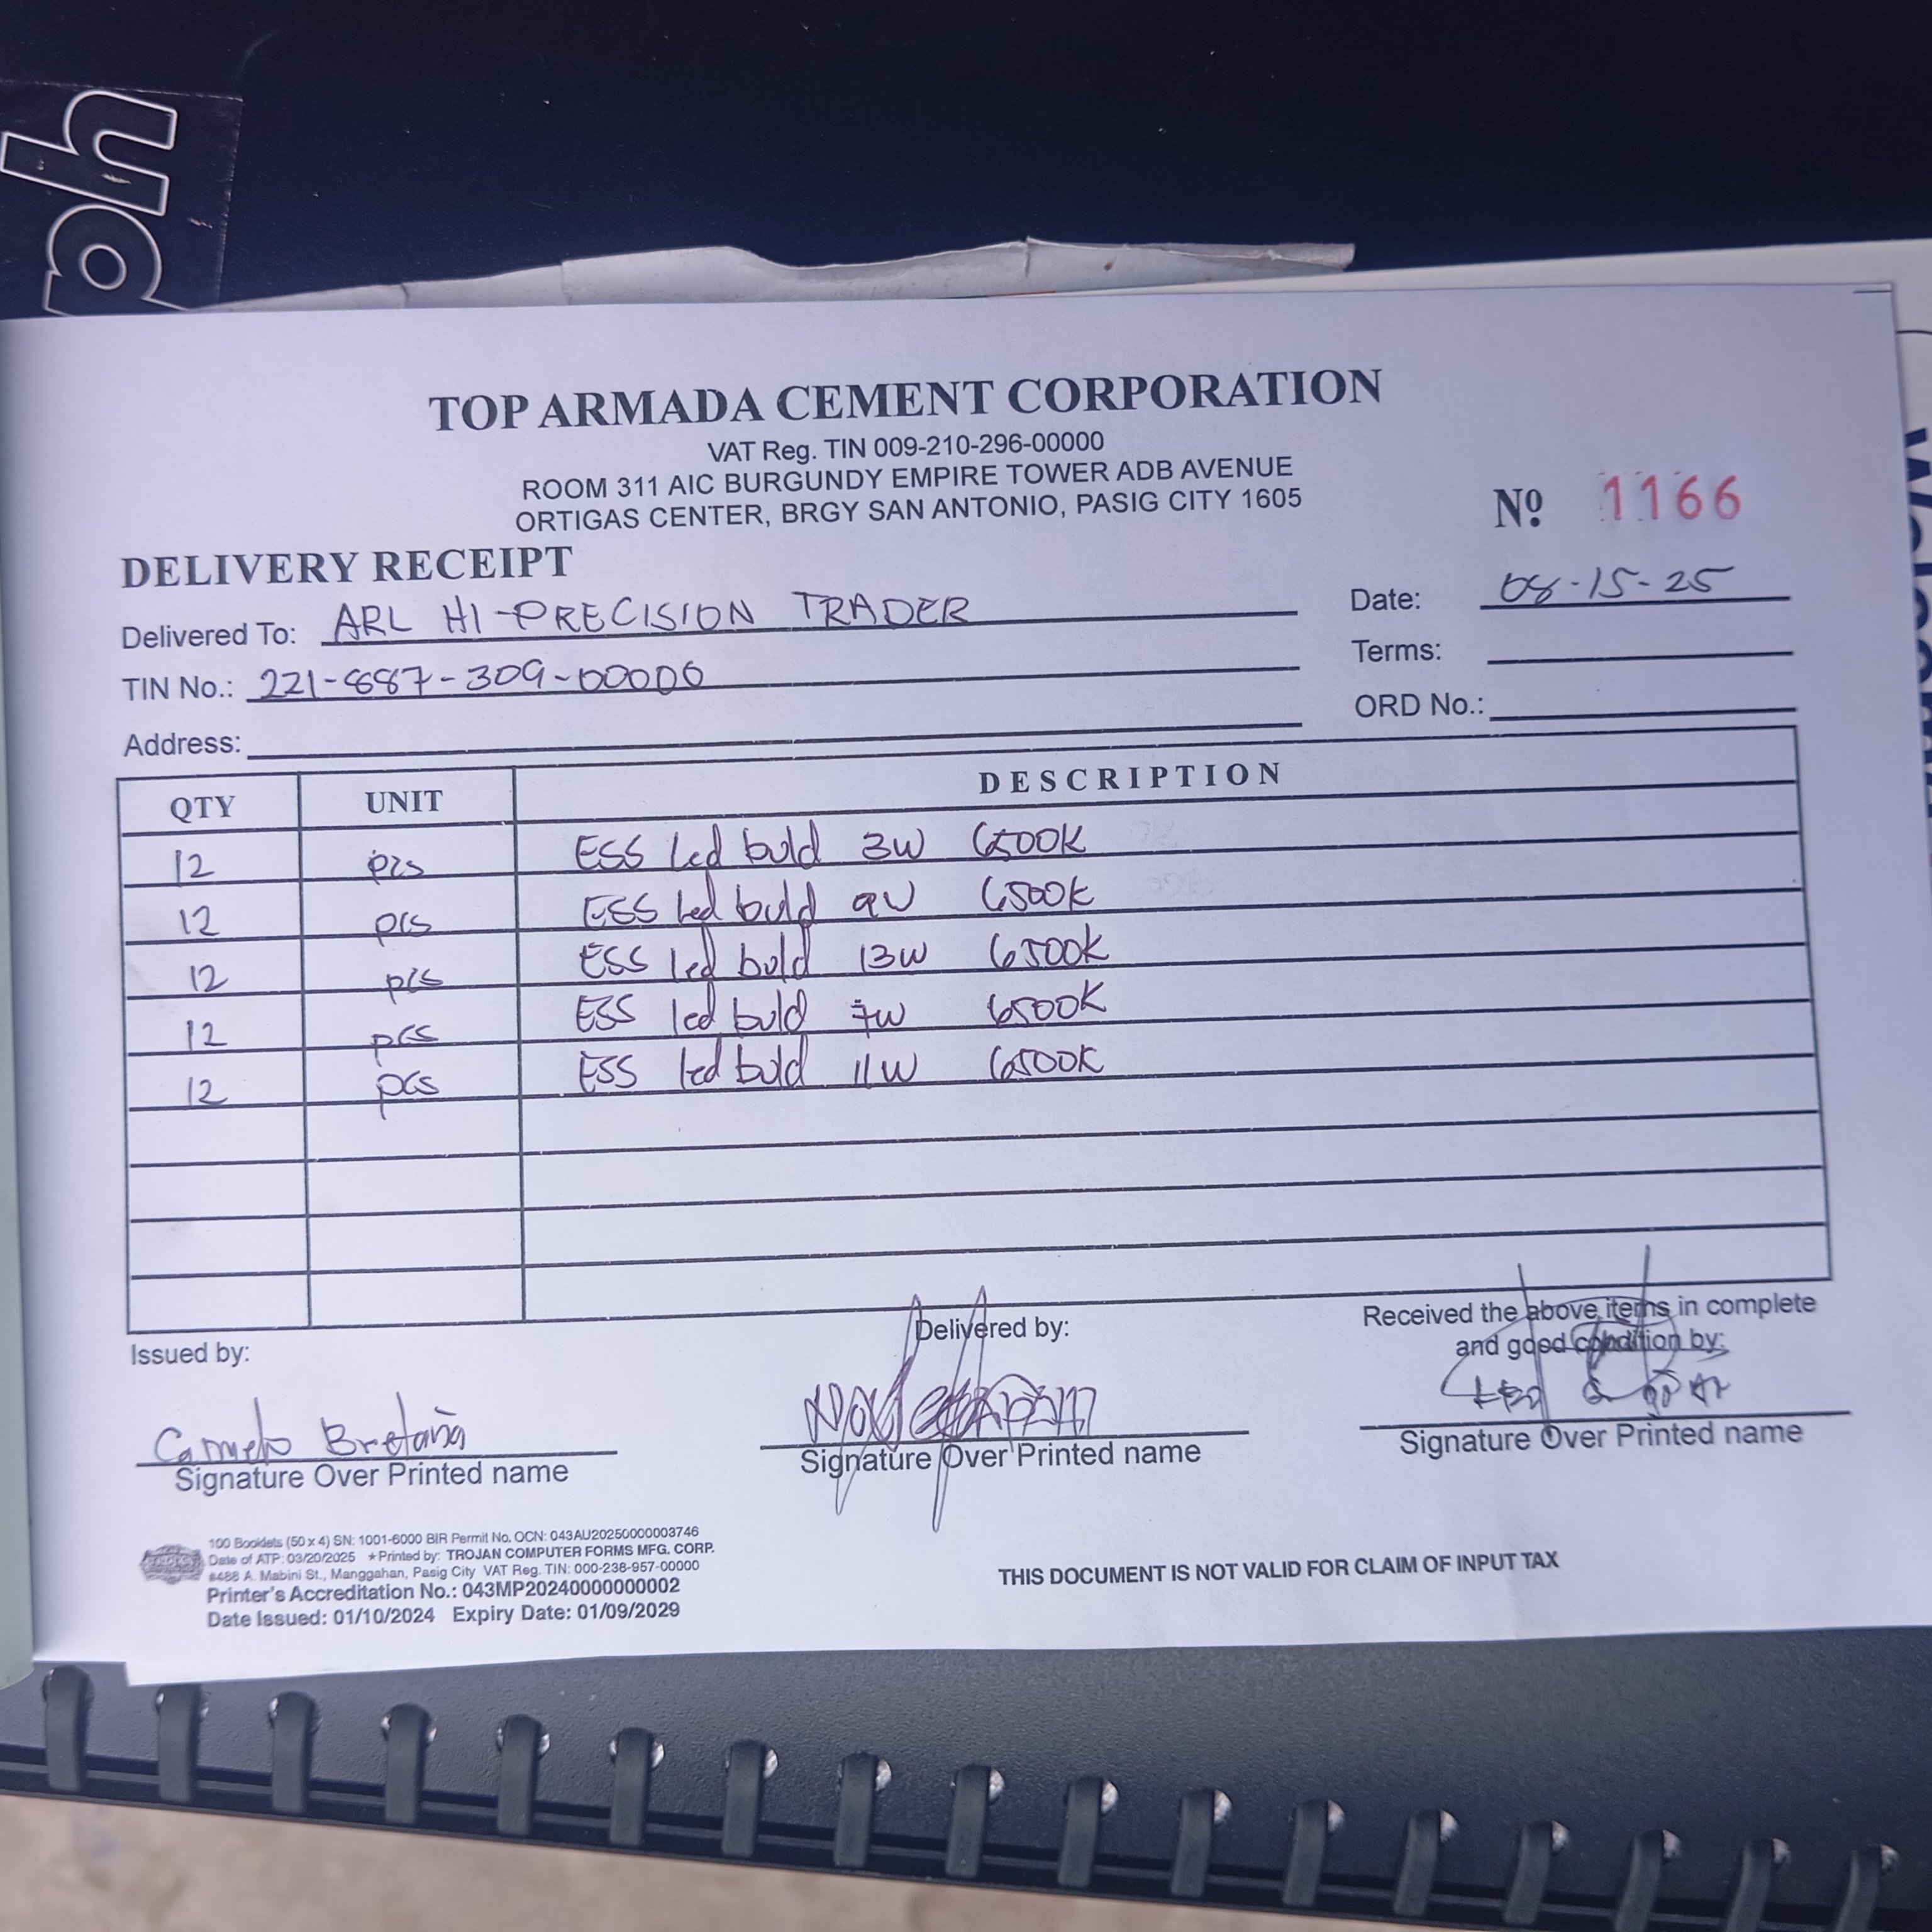 ya
TOP ARMADA CEMENT CORPORATION
VAT Reg. TIN 009-210-296-00000
ROOM 311 AIC BURGUNDY EMPIRE TOWER ADB AVENUE
ORTIGAS CENTER, BRGY SAN ANTONIO, PASIG CITY 1605
Nº 1166
DELIVERY RECEIPT
Delivered To: ARL HI-PRECISION TRADER
Date: 08-15-25
TIN No.: 221-887-309-00000
Terms:
Address:
ORD No.:
QTY UNIT DESCRIPTION
12 pcs ESS led buld 3W 6500K
12 pcs ESS led buld 9W 6500K
12 pcs ESS led buld 13W 6500K
12 pcs ESS led buld 7W 6500K
12 pcs ESS led buld 11W 6500K
Issued by:
Delivered by:
Received the above items in complete
and good condition by:
Camelo Bretaña
Signature Over Printed name
Signature Over Printed name
Signature Over Printed name
100 Booklets (50 x 4) SN: 1001-6000 BIR Permit No. OCN: 043AU20250000003746
Date of ATP: 03/20/2025 ★Printed by: TROJAN COMPUTER FORMS MFG. CORP.
#488 A. Mabini St., Manggahan, Pasig City VAT Reg. TIN: 000-238-957-00000
Printer's Accreditation No.: 043MP20240000000002
Date Issued: 01/10/2024 Expiry Date: 01/09/2029
THIS DOCUMENT IS NOT VALID FOR CLAIM OF INPUT TAX